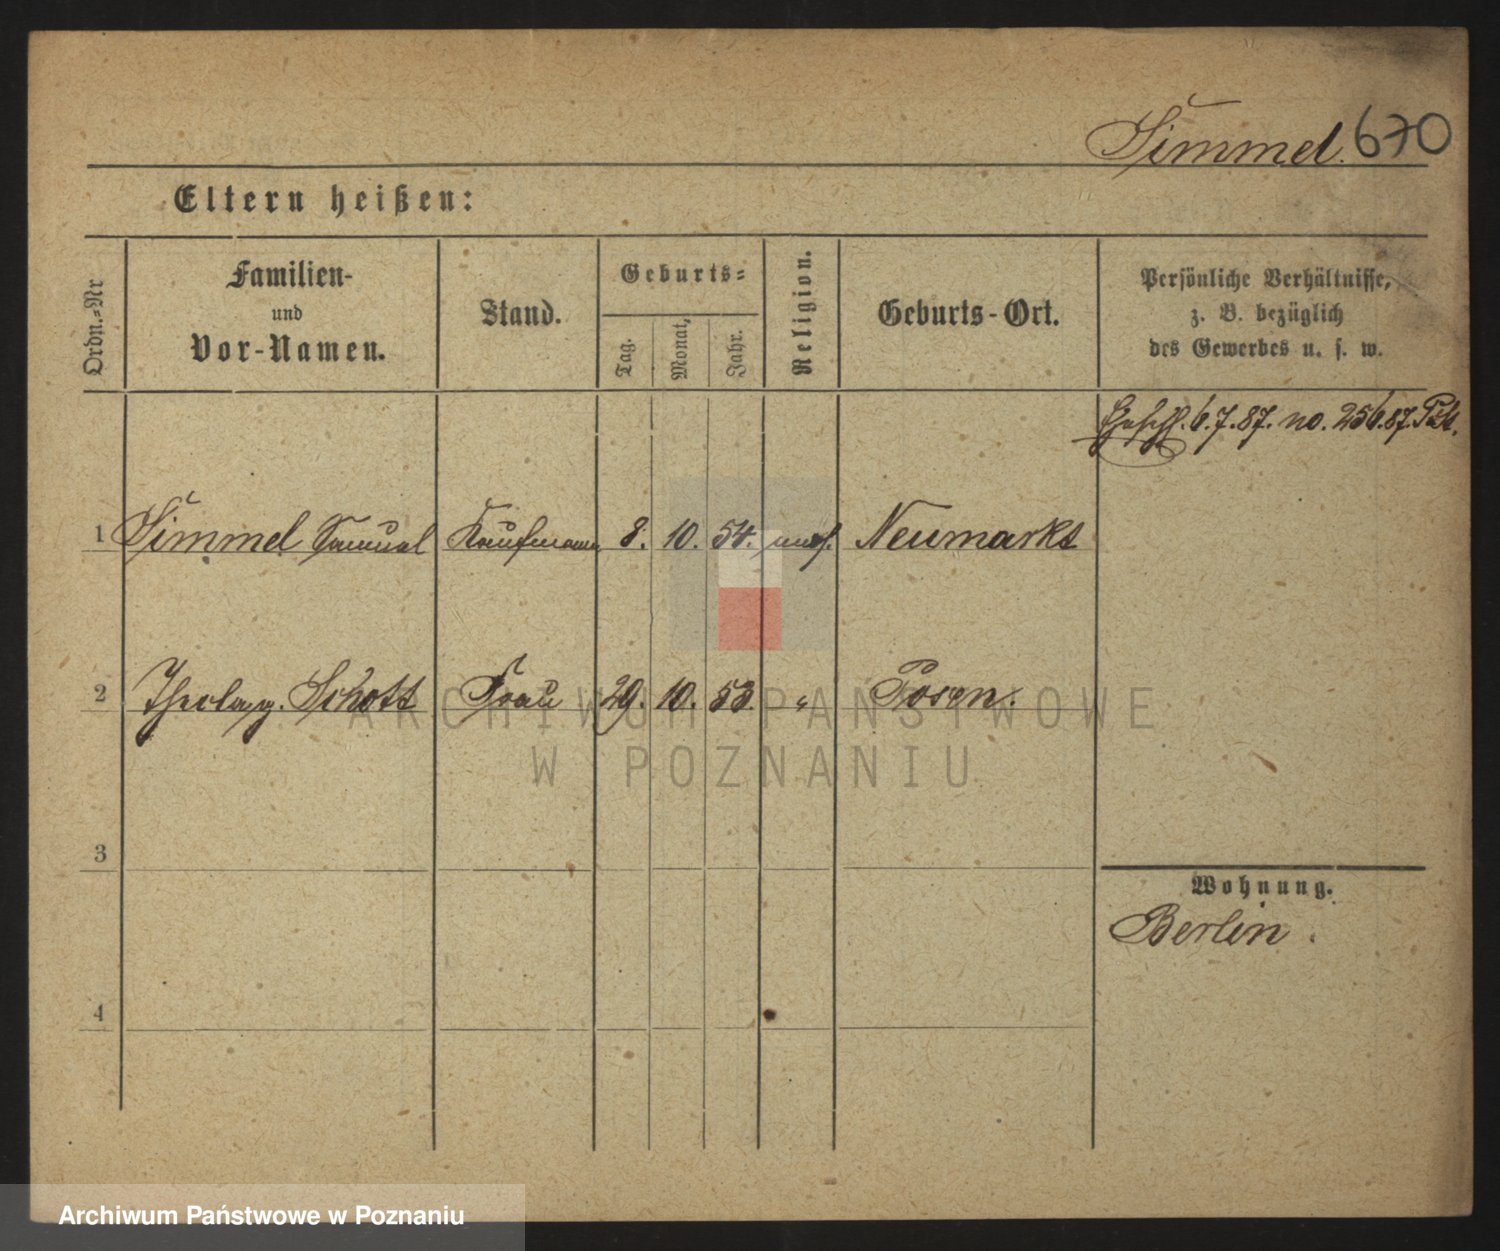 Simmel. 670
Eltern heißen:
Ordn.-Nr
Familien-
und
Vor-Namen.
Stand.
Geburts-
Tag.
Monat,
Jahr.
Religion.
Geburts-Ort.
Persönliche Verhältnisse,
z. B. bezüglich
des Gewerbes u. s. w.
6.7.87. no. 256.87.
1 Simmel Samuel Kaufmann 8. 10. 54. mos. Neumarkt
2 Schott Frau 29. 10. 53. " Posen.
3
Wohnung.
Berlin.
4
ARCHIWUM PAŃSTWOWE
W POZNANIU
Archiwum Państwowe w Poznaniu